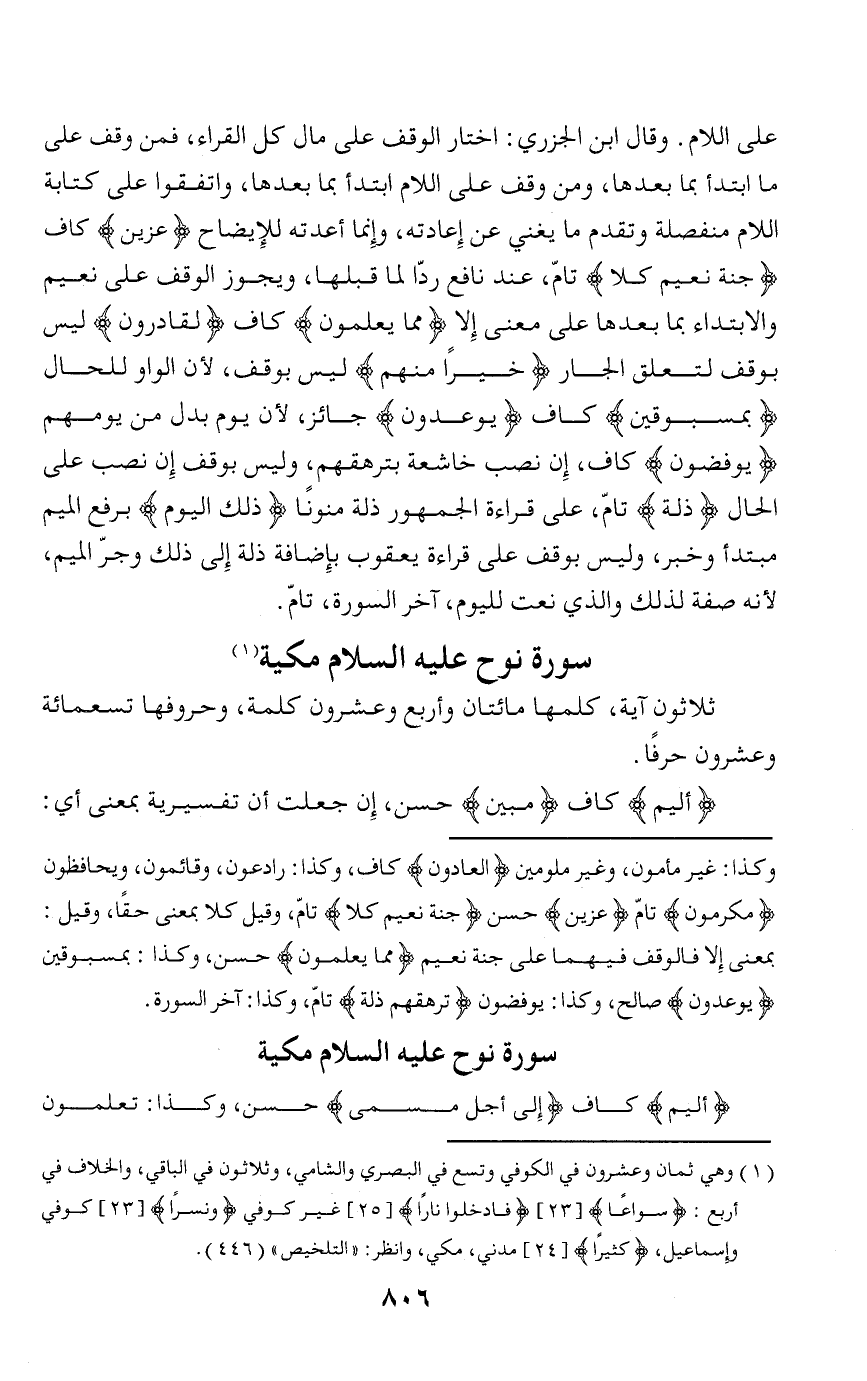 على اللام. وقال ابن الجزري: اختار الوقف على مال كل القراء، فمن وقف على
ما ابتدأ بما بعدها، ومن وقف على اللام ابتدأ بما بعدها، واتفقوا على كتابة
اللام منفصلة وتقدم ما يغني عن إعادته، وإنما أعدته للإيضاح ﴿عزين﴾ كاف
﴿جنة نعيم كلا﴾ تامّ، عند نافع ردّا لما قبلها، ويجوز الوقف على نعيم
والابتداء بما بعدها على معنى إلا ﴿مما يعلمون﴾ كاف ﴿لقادرون﴾ ليس
بوقف لتعلق الجار ﴿خيرًا منهم﴾ ليس بوقف، لأن الواو للحال
﴿بمسبوقين﴾ كاف ﴿يوعدون﴾ جائز، لأن يوم بدل من يومهم
﴿يوفضون﴾ كاف، إن نصب خاشعة بترهقهم، وليس بوقف إن نصب على
الحال ﴿ذلة﴾ تامّ، على قراءة الجمهور ذلة منونًا ﴿ذلك اليوم﴾ برفع الميم
مبتدأ وخبر، وليس بوقف على قراءة يعقوب بإضافة ذلة إلى ذلك وجرّ الميم،
لأنه صفة لذلك والذي نعت لليوم، آخر السورة، تامّ.
سورة نوح عليه السلام مكية(١)
ثلاثون آية، كلمها مائتان وأربع وعشرون كلمة، وحروفها تسعمائة
وعشرون حرفًا.
﴿أليم﴾ كاف ﴿مبين﴾ حسن، إن جعلت أن تفسيرية بمعنى أي:
وكذا: غير مأمون، وغير ملومين ﴿العادون﴾ كاف، وكذا: رادعون، وقائمون، ويحافظون
﴿مكرمون﴾ تامّ ﴿عزين﴾ حسن ﴿جنة نعيم كلا﴾ تامّ، وقيل كلا بمعنى حقًا، وقيل:
بمعنى إلا فالوقف فيهما على جنة نعيم ﴿مما يعلمون﴾ حسن، وكذا: بمسبوقين
﴿يوعدون﴾ صالح، وكذا: يوفضون ﴿ترهقهم ذلة﴾ تامّ، وكذا: آخر السورة.
سورة نوح عليه السلام مكية
﴿أليم﴾ كاف ﴿إلى أجل مسمى﴾ حسن، وكذا: تعلمون
(١) وهي ثمان وعشرون في الكوفي وتسع في البصري والشامي، وثلاثون في الباقي، والخلاف في
أربع: ﴿سواعًا﴾ [٢٣] ﴿فادخلوا نارًا﴾ [٢٥] غير كوفي ﴿ونسرًا﴾ [٢٣] كوفي
وإسماعيل، ﴿كثيرًا﴾ [٢٤] مدني، مكي، وانظر: «التلخيص» (٤٤٦).
٨٠٦